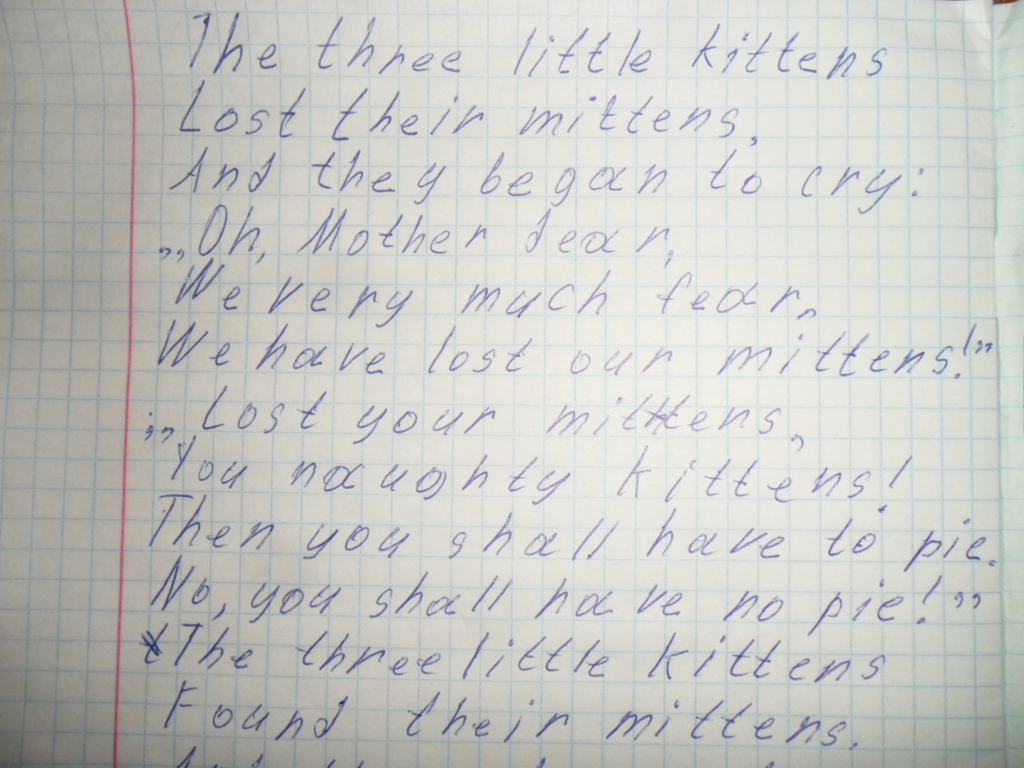 The three little kittens
Lost their mittens,
And they began to cry:
„Oh, Mother dear,
We very much fear,
We have lost our mittens!”
„Lost your mittens,
You naughty kittens!
Then you shall have to pie.
No, you shall have no pie!”
The three little kittens
Found their mittens.